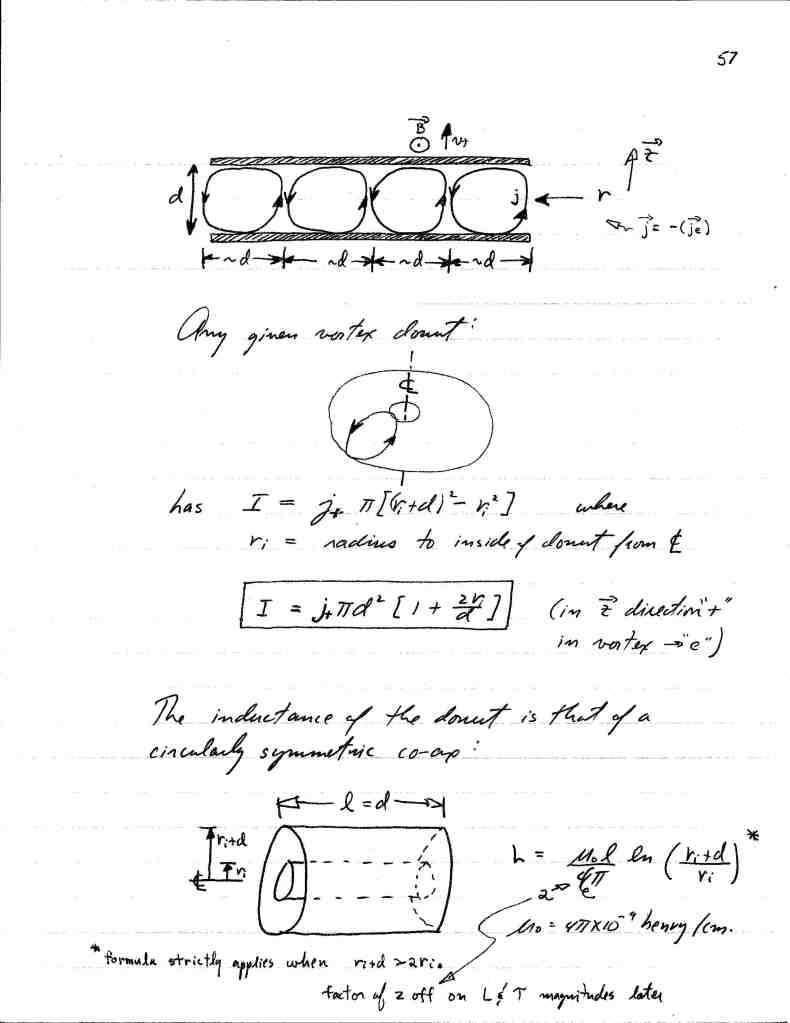 57
B⃗
v₊
d
j
r
z⃗
j⃗ = -(j⃗e)
~d ~d ~d ~d
Any given vortex donut:
℄
has I = j₊ π[(ri+d)² - ri²] where
ri = radius to inside of donut from ℄
I = j₊πd² [1 + 2ri/d] (in z⃗ direction "+"
in vortex → "e")
The inductance of the donut is that of a
circularly symmetric co-ax:
l = d
ri+d
ri
℄
L = μ₀l/4π ln (ri+d/ri)*
2
μ₀ = 4π×10⁻⁹ henry/cm.
* formula strictly applies when ri+d > 2ri.
factor of 2 off on L & T magnitudes later